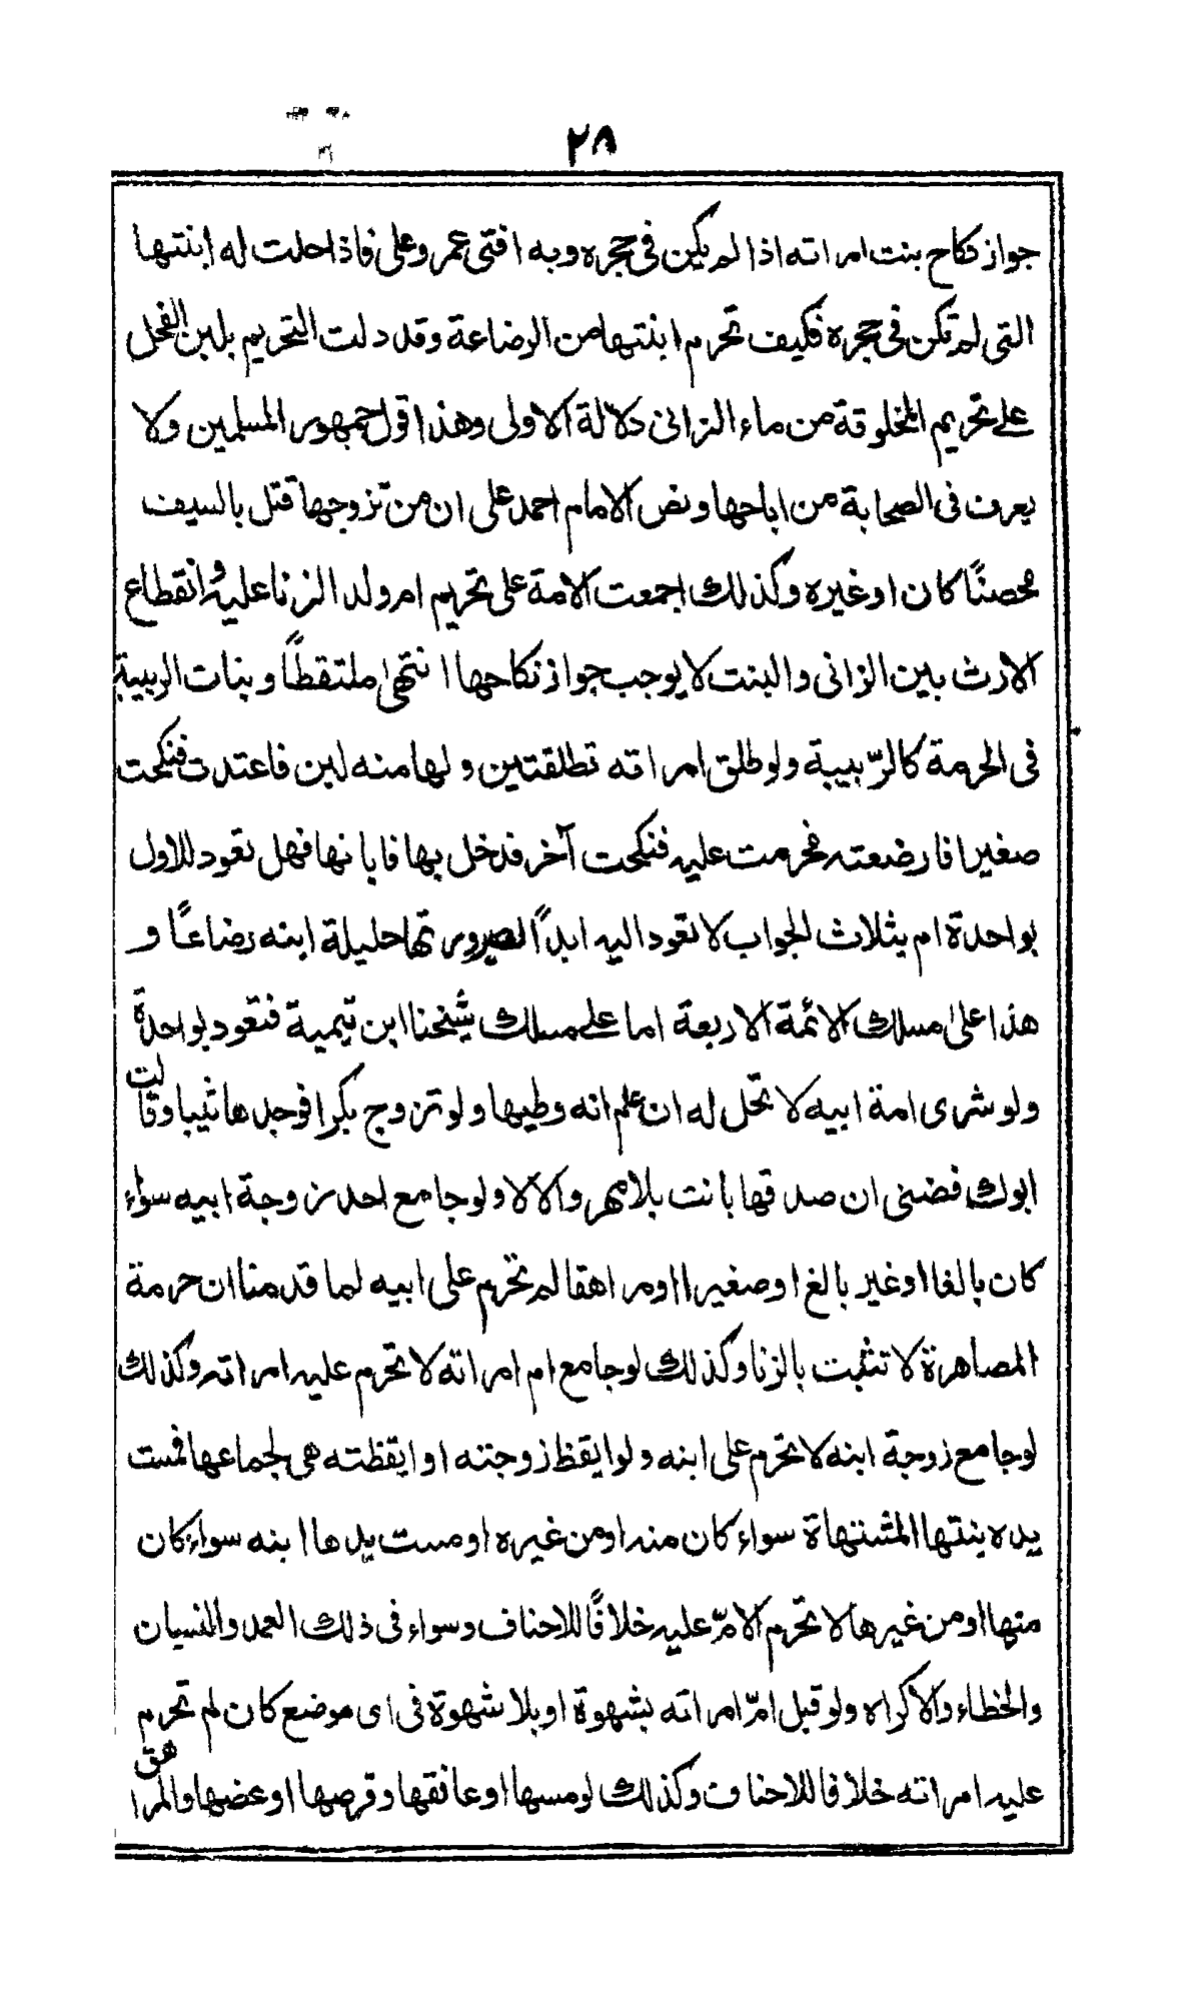 ٢٨
جواز نكاح بنت امراته اذا لم يكن فى حجره وبه افتى عمر وعلى فاذا حلت له ابنتها
التى لم تكن فى حجره فكيف تحرم ابنتها من الرضاعة وقد دلت التحريم بلبن الفحل
على تحريم المخلوقة من ماء الزانى دلالة الاولى وهذا قول جمهور المسلمين ولا
يعرف فى الصحابة من اباحها ونص الامام احمد على ان من تزوجها قتل بالسيف
محصنًا كان او غيره وكذلك اجمعت الامة على تحريم ام ولد الزنا عليه وانقطاع
الارث بين الزانى والبنت لا يوجب جواز نكاحها انتهى ملتقطًا وبنات الربيبة
فى الحرمة كالرّبيبة ولو طلق امراته تطلقتين ولها منه لبن فاعتدت فنكحت
صغيرا فارضعته فحرمت عليه فنكحت آخر فدخل بها فابانها فهل تعود للاول
بواحدة ام بثلاث الجواب لا تعود اليه ابدًا لصيرورتها حليلة ابنه رضاعًا و
هذا على مسلك الائمة الاربعة اما على مسلك شيخنا ابن تيمية فتعود بواحدة
ولو شرى امة ابيه لا تحل له ان علم انه وطيها ولو تزوج بكرا فوجدها ثيبا وقالت
ابوك فضنى ان صدقها بانت بلا مهر والا لا ولو جامع احد زوجة ابيه سواء
كان بالغا او غير بالغ او صغيرا او مراهقا لم تحرم على ابيه لما قدمنا ان حرمة
المصاهرة لا تثبت بالزنا وكذلك لو جامع ام امراته لا تحرم عليه امراته وكذلك
لو جامع زوجة ابنه لا تحرم على ابنه ولو ايقظ زوجته او ايقظته هى لجماعها فمست
يده بنتها المشتهاة سواء كان منه او من غيره او مست يدها ابنه سواء كان
منها او من غيرها لا تحرم الامّ عليه خلافًا للاحناف وسواء فى ذلك العمد والنسيان
والخطاء والاكراه ولو قبل امّ امراته بشهوة او بلا شهوة فى اى موضع كان لم تحرم
عليه امراته خلافا للاحناف وكذلك لو مسها او عانقها وقرصها او عضها والمراهق